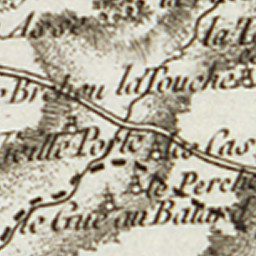 Asse
la T
Brehou la Touche
Vieille Porte les Cas
le Perche
le Gué au Balard